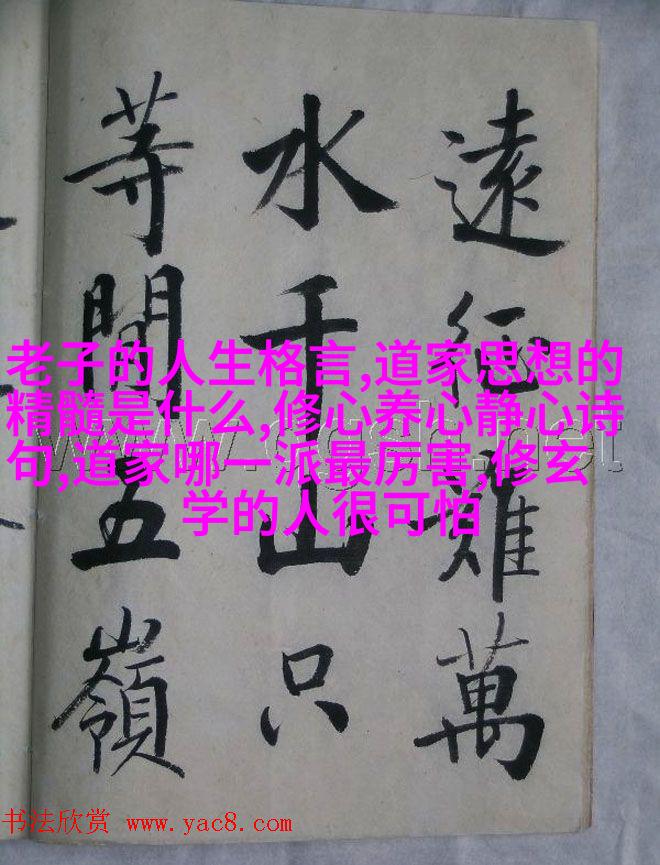 遠征難萬
水千山只
等閒五嶺
老子的人生格言,道家思想的
精髓是什么,修心养心静心诗
句,道家哪一派最厉害,修玄
学的人很可怕
书法欣赏 www.yac8.com